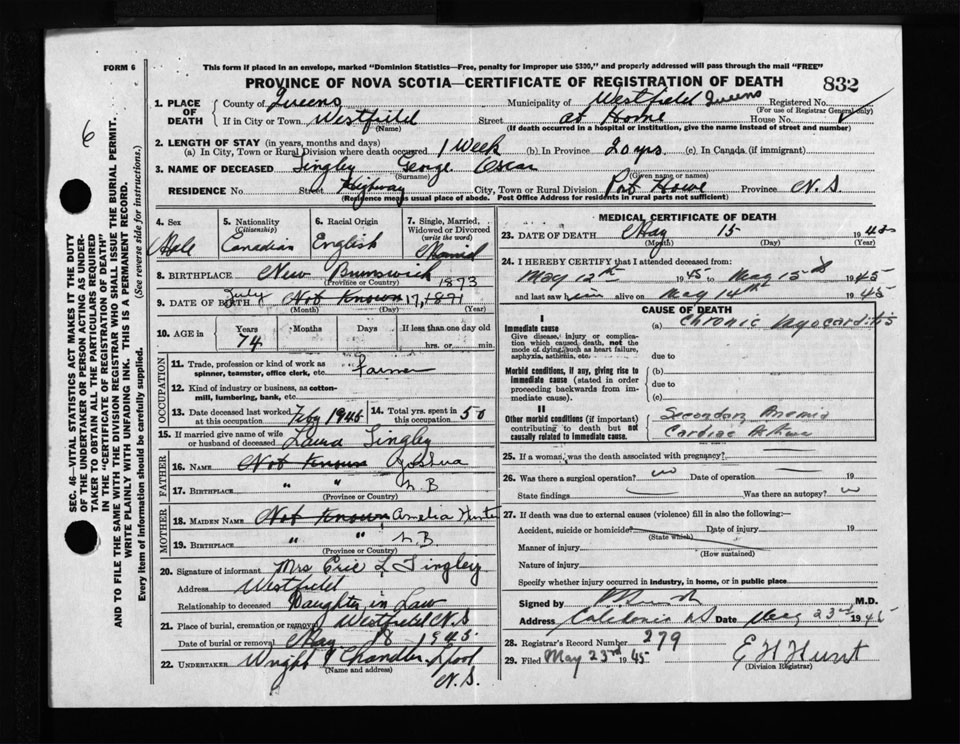 FORM 6
This form if placed in an envelope, marked "Dominion Statistics—Free, penalty for improper use $300," and properly addressed will pass through the mail "FREE"
PROVINCE OF NOVA SCOTIA—CERTIFICATE OF REGISTRATION OF DEATH 832
6
SEC. 46—VITAL STATISTICS ACT MAKES IT THE DUTY
OF THE UNDERTAKER OR PERSON ACTING AS UNDER-
TAKER TO OBTAIN ALL THE PARTICULARS REQUIRED
IN THE "CERTIFICATE OF REGISTRATION OF DEATH"
AND TO FILE THE SAME WITH THE DIVISION REGISTRAR WHO SHALL ISSUE THE BURIAL PERMIT.
WRITE PLAINLY WITH UNFADING INK. THIS IS A PERMANENT RECORD.
Every item of information should be carefully supplied. (See reverse side for instructions.)
1. PLACE OF DEATH
County of Queens Municipality of Westfield Queens Registered No.
(For use of Registrar General only)
If in City or Town Westfield Street at Home House No.
(Name) (If death occurred in a hospital or institution, give the name instead of street and number)
2. LENGTH OF STAY (in years, months and days)
(a) In City, Town or Rural Division where death occurred 1 Week (b) In Province 20 yrs. (c) In Canada (if immigrant)
3. NAME OF DECEASED Tingley George Oscar
(Surname) (Given name or names)
RESIDENCE No. Street Highway City, Town or Rural Division Port Howe Province N.S.
(Residence means usual place of abode. Post Office Address for residents in rural parts not sufficient)
4. Sex Male
5. Nationality (Citizenship) Canadian
6. Racial Origin English
7. Single, Married, Widowed or Divorced (write the word) Married
8. BIRTHPLACE New Brunswick
(Province or Country)
1873
9. DATE OF BIRTH July Not Known 17, 1871
(Month) (Day) (Year)
10. AGE in Years 74 Months Days If less than one day old
hrs. or min.
OCCUPATION
11. Trade, profession or kind of work as spinner, teamster, office clerk, etc. Farmer
12. Kind of industry or business, as cotton-mill, lumbering, bank, etc.
13. Date deceased last worked at this occupation Feby 1945
14. Total yrs. spent in this occupation 50
15. If married give name of wife or husband of deceased Laura Tingley
FATHER
16. NAME Not Known
17. BIRTHPLACE " " N.B
(Province or Country)
MOTHER
18. MAIDEN NAME Not Known Amelia
19. BIRTHPLACE " " N.B.
(Province or Country)
20. Signature of informant Mrs Eric L Tingley
Address Westfield
Relationship to deceased Daughter in Law
21. Place of burial, cremation or removal Westfield N.S
Date of burial or removal May 18 1945
22. UNDERTAKER Wright & Chandler
(Name and address)
N.S.
MEDICAL CERTIFICATE OF DEATH
23. DATE OF DEATH May 15 1945
(Month) (Day) (Year)
24. I HEREBY CERTIFY that I attended deceased from:
May 12th 1945 to May 15th 1945
and last saw him alive on May 14th 1945
CAUSE OF DEATH
I
Immediate cause (a) Chronic Myocarditis
Give disease, injury or complica-
tion which caused death, not the
mode of dying, such as heart failure,
asphyxia, asthenia, etc. due to
Morbid conditions, if any, giving rise to (b)
immediate cause (stated in order
proceeding backwards from im- due to
mediate cause). (c)
II
Other morbid conditions (if important) Secondary Anemia
contributing to death but not
causally related to immediate cause. Cardiac
25. If a woman, was the death associated with pregnancy?
26. Was there a surgical operation? no Date of operation 19
State findings Was there an autopsy?
27. If death was due to external causes (violence) fill in also the following:—
Accident, suicide or homicide Date of injury 19
(State which)
Manner of injury
(How sustained)
Nature of injury
Specify whether injury occurred in industry, in home, or in public place
Signed by M.D.
Address Caledonia NS Date May 23rd 1945
28. Registrar's Record Number 279
29. Filed May 23rd 1945 E H Hunt
(Division Registrar)